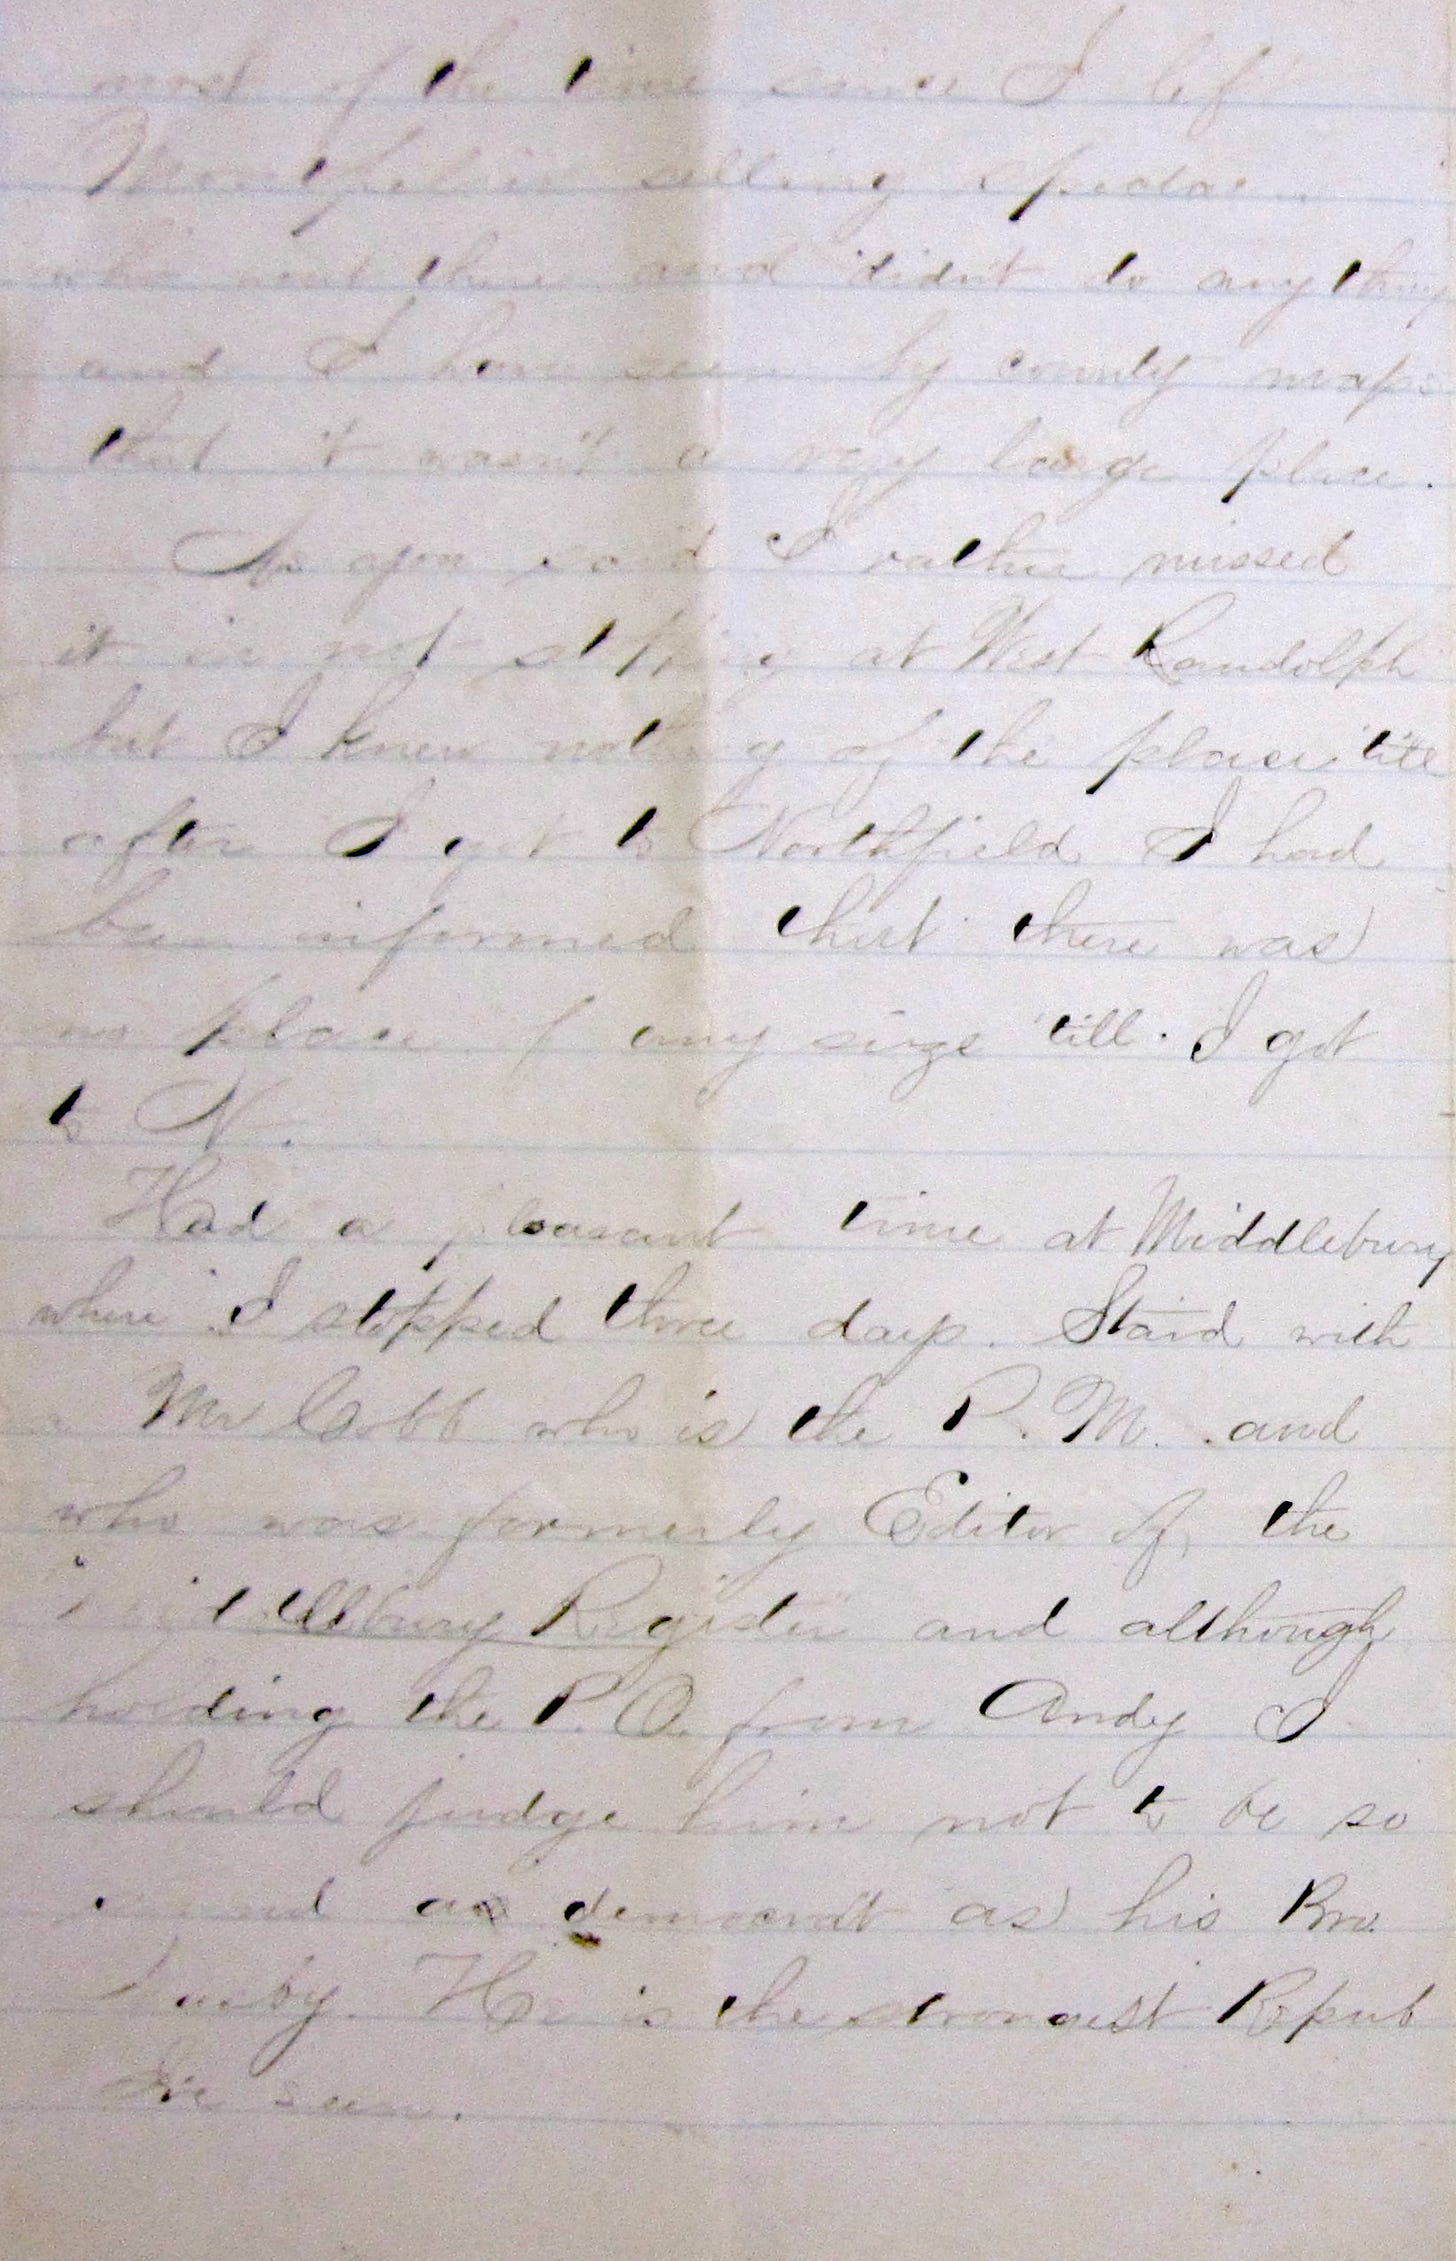 most of the time since I left
Montpelier selling
who went there and didn't do any thing
and I have seen by county maps
that it wasn't a very large place.
As you said I rather missed
it in not stopping at West Randolph
but I knew nothing of the place 'till
after I got to Northfield I had
been informed that there was
no place of any size 'till I got
to N.
Had a pleasant time at Middlebury
where I stopped three days. Staid with
a Mr Cobb who is the P. M. and
who was formerly Editor of the
Middlebury Register and although
holding the P. O. from Andy I
should judge him not to be so
sound a democrat as his Bro.
He is the strongest Repub
I've seen.